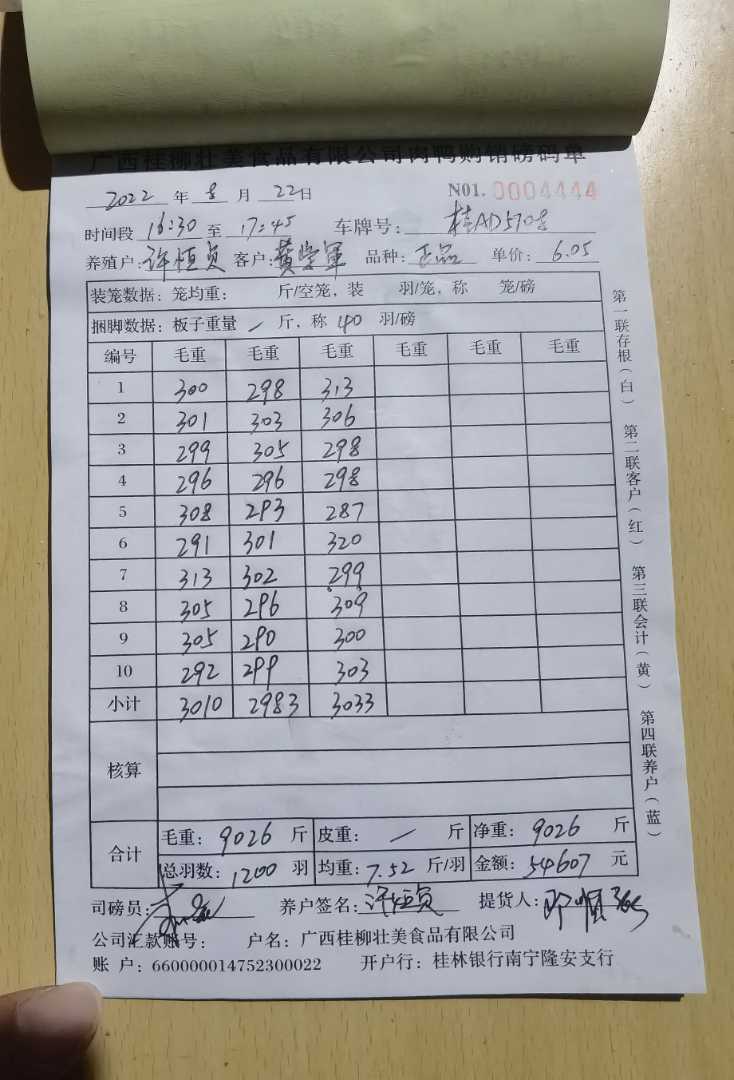 广西桂柳壮美食品有限公司肉鸭购销磅码单
2022 年 8 月 22日 N01. 0004444
时间段 16:30 至 17:45 车牌号: 桂AD570
养殖户: 许恒贞 客户: 黄学军 品种: 正品 单价: 6.05
装笼数据: 笼均重: 斤/空笼, 装 羽/笼, 称 笼/磅
捆脚数据: 板子重量 — 斤, 称 40 羽/磅
编号 毛重 毛重 毛重 毛重 毛重 毛重
1 300 298 313
2 301 303 306
3 299 305 298
4 296 296 298
5 308 293 287
6 291 301 320
7 313 302 299
8 305 296 309
9 305 290 300
10 292 299 303
小计 3010 2983 3033
核算
合计 毛重: 9026 斤 皮重: — 斤 净重: 9026 斤
总羽数: 1200 羽 均重: 7.52 斤/羽 金额: 54607 元
司磅员: 养户签名: 许恒贞 提货人:
公司汇款账号: 户名: 广西桂柳壮美食品有限公司
账 户: 660000014752300022 开户行: 桂林银行南宁隆安支行
第一联存根(白) 第二联客户(红) 第三联会计(黄) 第四联养户(蓝)